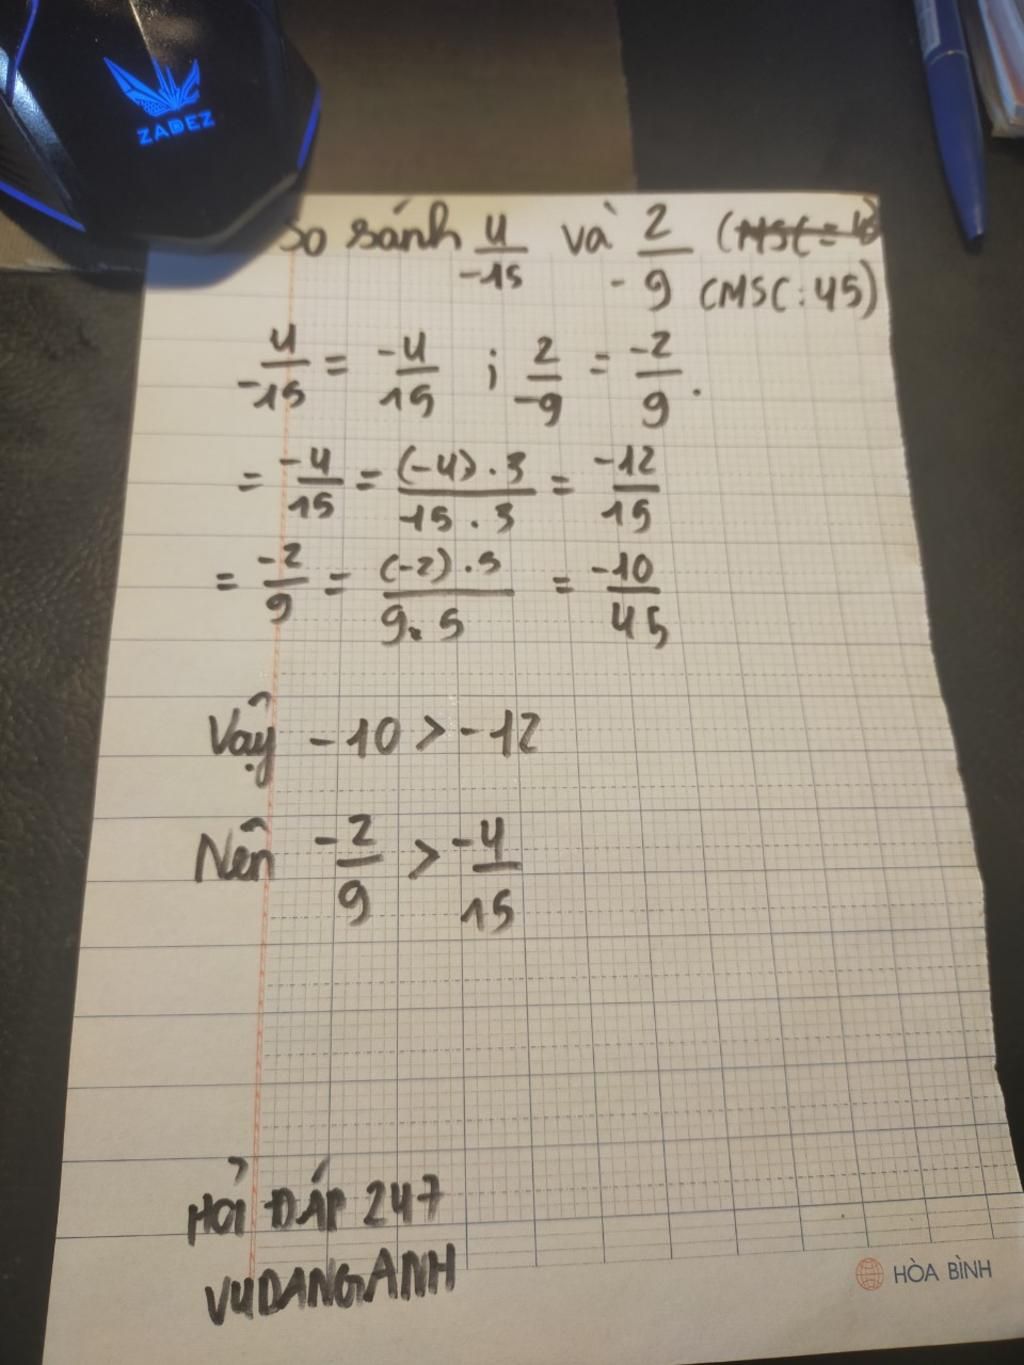 ZADEZ
So sánh 4/-15 và 2/-9 (MSC: 45)
4/-15 = -4/15 ; 2/-9 = -2/9.
= -4/15 = (-4).3/15.3 = -12/15
= -2/9 = (-2).5/9.5 = -10/45
Vậy -10 > -12
Nên -2/9 > -4/15
HỎI ĐÁP 247
VUDANGANH
HÒA BÌNH